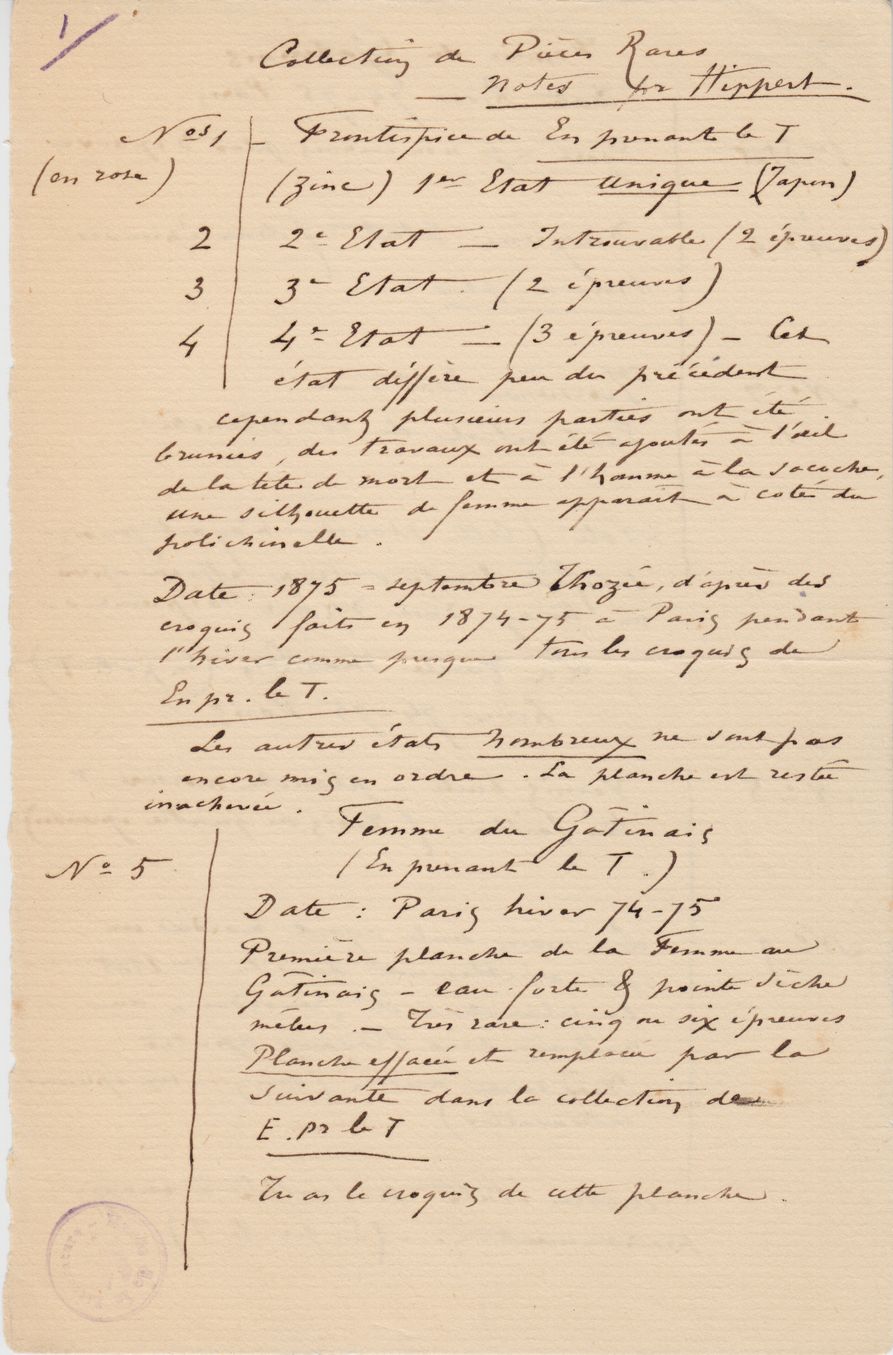 1
Collection de Pièces Rares
— Notes pr Hippert.
Nos 1 — Frontispice de En prenant le T
(en rose) (Zinc) 1er Etat unique (Japon)
2 2e Etat — Introuvable (2 épreuves)
3 3e Etat. (2 épreuves)
4 4e Etat — (3 épreuves) — Cet
état diffère peu du précédent
cependant plusieurs parties ont été
brunies, des travaux ont été ajoutés à l'œil
de la tête de mort et à l'homme à la sacoche,
une silhouette de femme apparait à coté du
polichinelle.
Date : 1875 = septembre Thozée, d'après des
croquis faits en 1874-75 à Paris pendant
l'hiver comme presque tous les croquis de
En pr. le T.
Les autres états nombreux ne sont pas
encore mis en ordre. La planche est restée
inachevée.
Femme du Gâtinais
No 5 (En prenant le T.)
Date : Paris hiver 74-75
Première planche de la Femme au
Gâtinais — eau-forte & pointe sèche
mêlées. — Très rare : cinq ou six épreuves
Planche effacée et remplacée par la
suivante dans la collection de
E. pr le T
Tu as le croquis de cette planche.